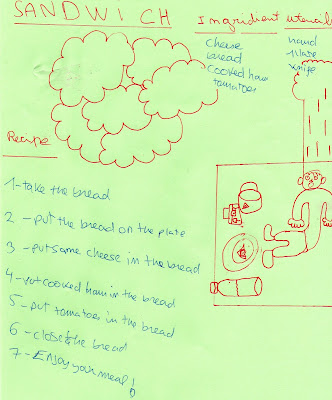 SANDWICH
Ingridient utensils
cheese
bread
cooked ham
tomatoes
hand
plate
knife
Recipe
1-take the bread
2 -put the bread on the plate
3 -put some cheese in the bread
4-put cooked ham in the bread
5-put tomatoes in the bread
6 -close the bread
7-Enjoy your meal!